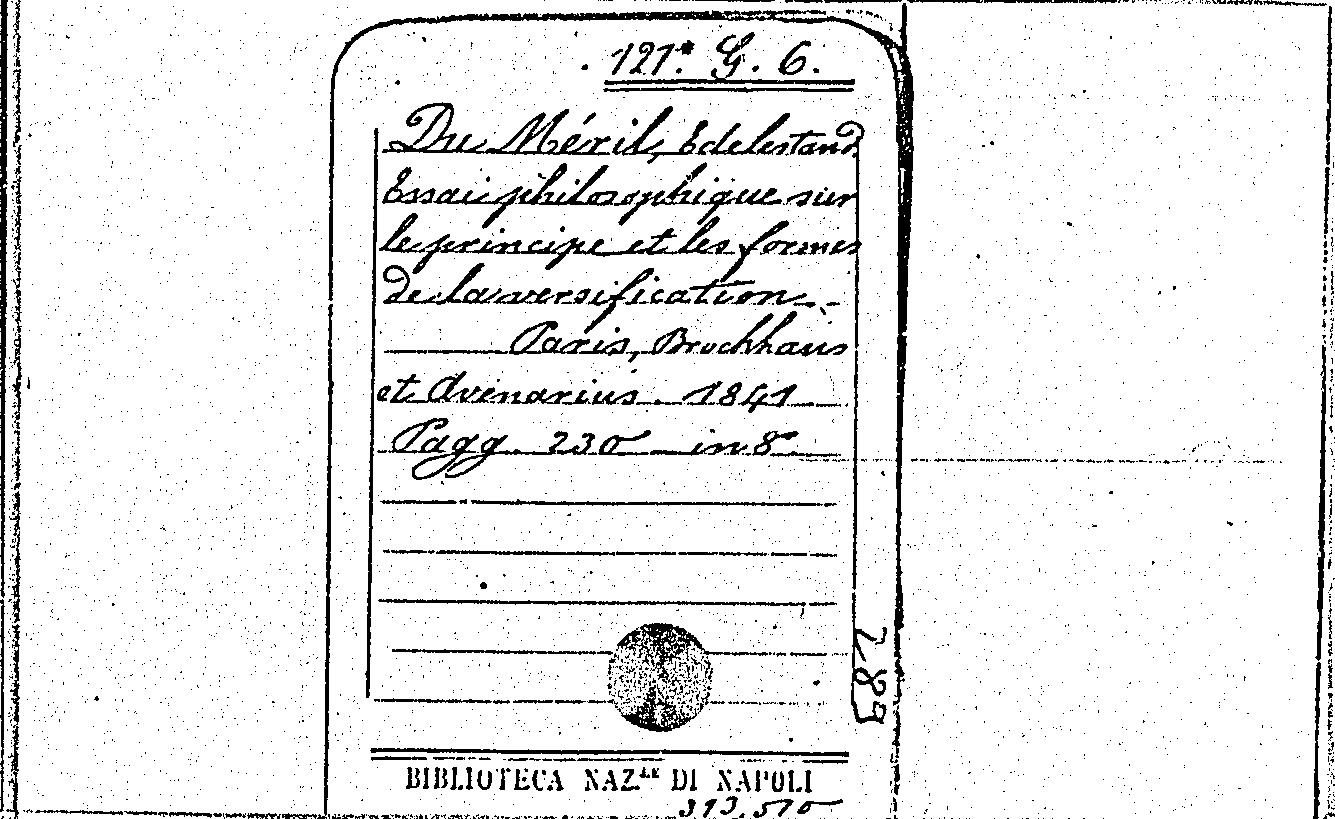 121.* G. 6.
Du Méril, Edelestand
Essai philosophique sur
le principe et les formes
de la versification..
Paris, Brockhaus
et Avenarius. 1841
Pagg. 230 in 8°
BIBLIOTECA NAZ.LE DI NAPOLI